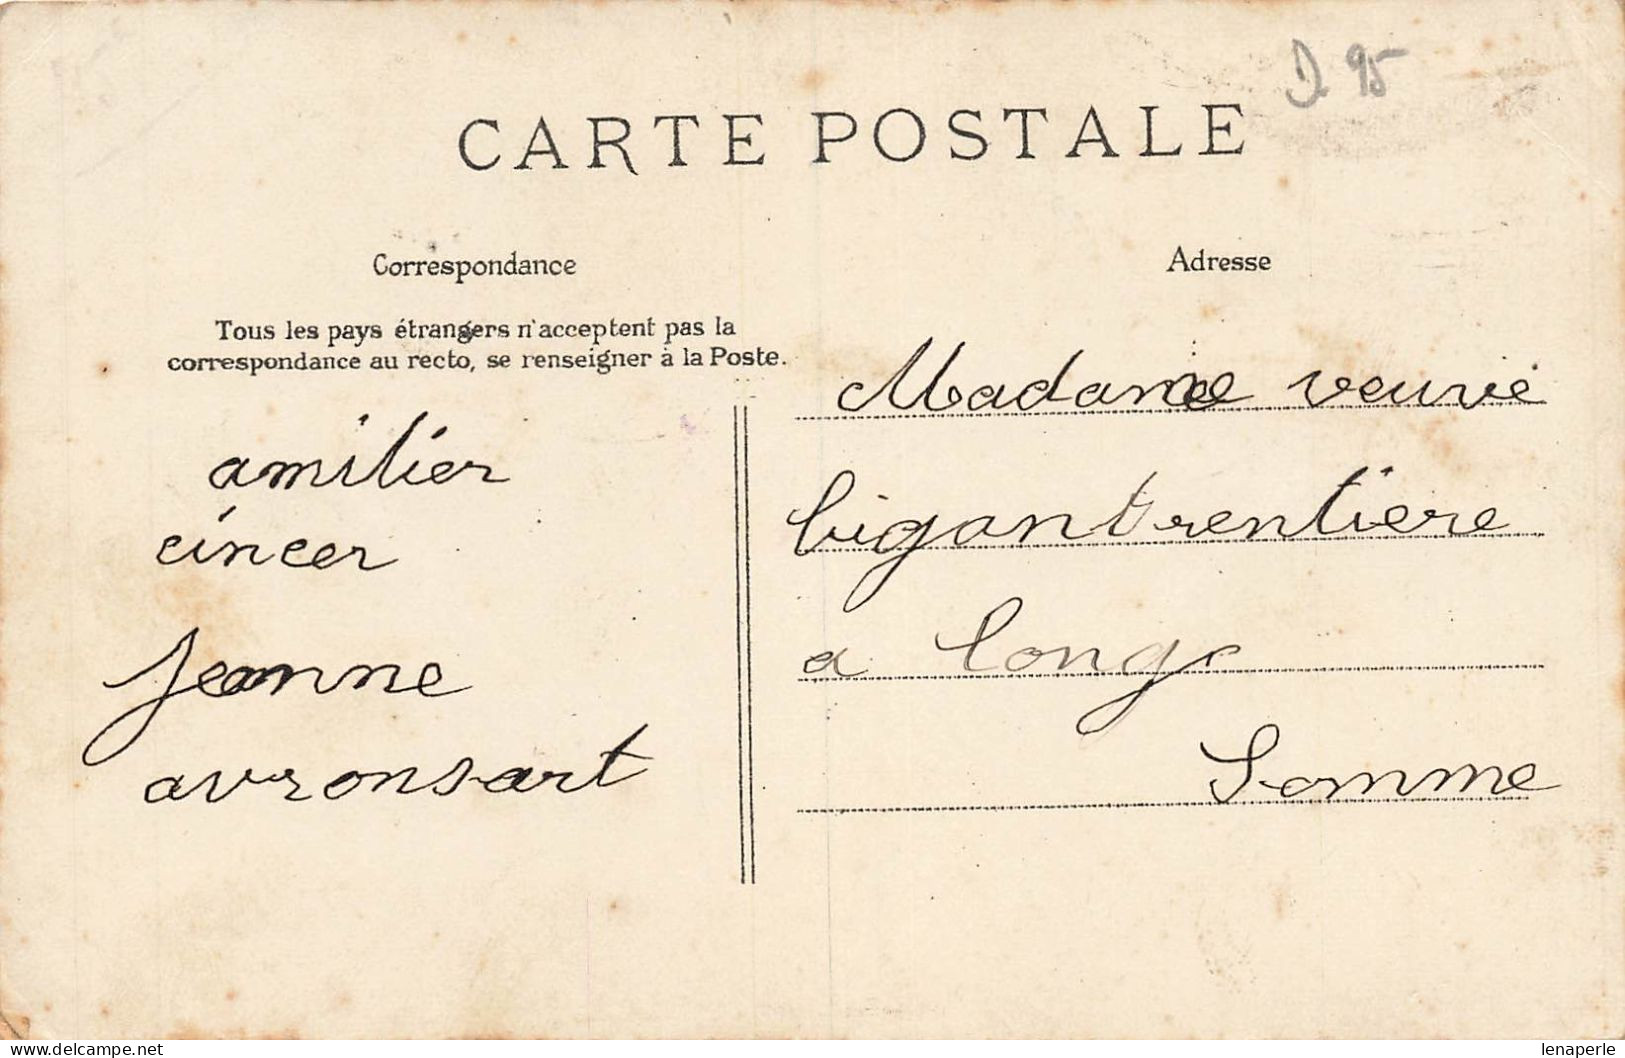 D. 95
CARTE POSTALE
Correspondance
Adresse
Tous les pays étrangers n'acceptent pas la
correspondance au recto, se renseigner à la Poste.
amitier
cincer
Jeanne
avronsart
Madame veuvie
bigant rentiere
a Long
Somme
lenaperle